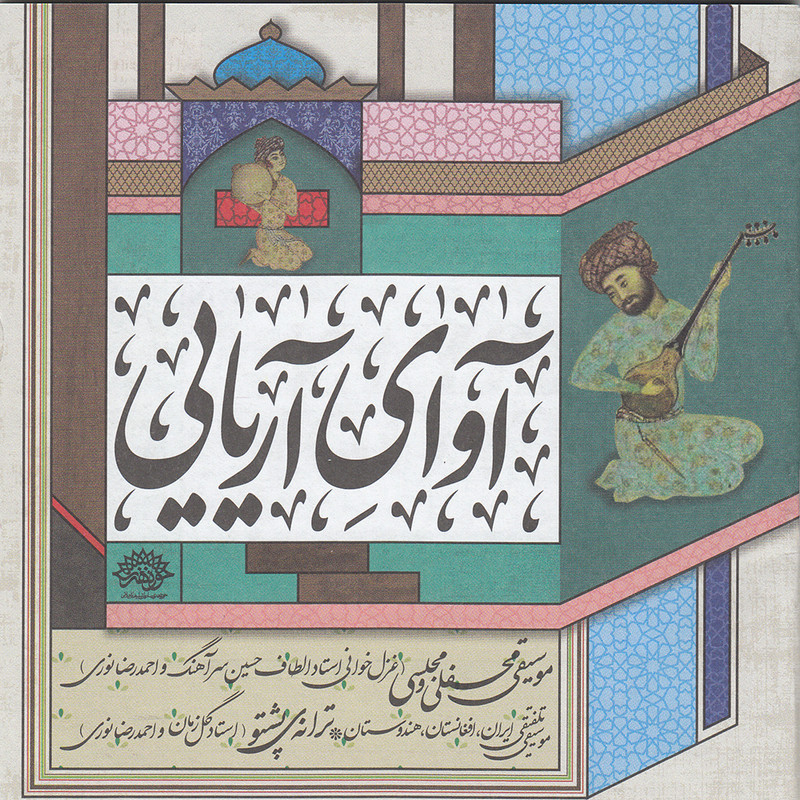 آوایِ آریایی
موسیقی محفلی و مجلسی (غزل خوانی استاد الطاف حسین سرآهنگ و احمدرضا نوری)
موسیقی تلفیقی ایران، افغانستان، هندوستان * ترانه‌ی پشتو (استاد گل زمان و احمدرضا نوری)